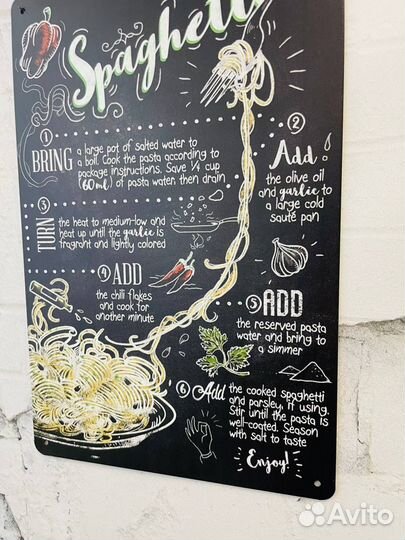 Spaghetti
1
BRING a large pot of salted water to
a boil. Cook the pasta according to
package instructions. Save ¼ cup
(60ml) of pasta water then drain
2
Add
the olive oil
and garlic to
a large cold
sauté pan
3
TURN the heat to medium-low and
heat up until the garlic is
fragrant and lightly colored
4 ADD
the chilli flakes
and cook for
another minute
5 ADD
the reserved pasta
water and bring to
a simmer
6 Add the cooked spaghetti
and parsley, if using.
Stir until the pasta is
well-coated. Season
with salt to taste
Enjoy!
Avito